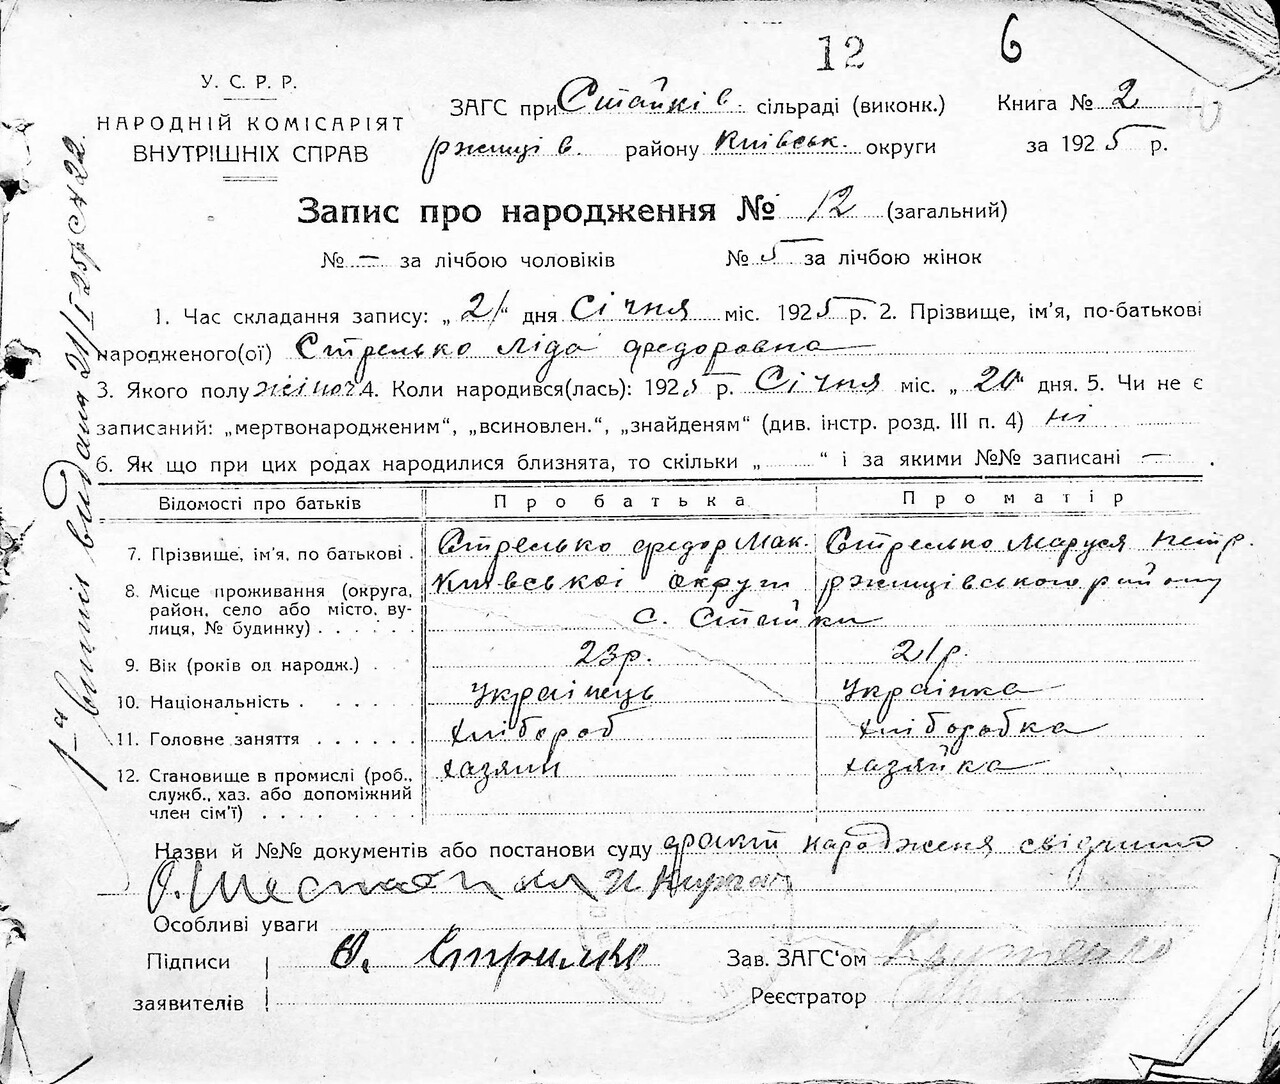 12 6
У. С. Р. Р.
НАРОДНІЙ КОМІСАРІЯТ
ВНУТРІШНІХ СПРАВ
ЗАГС при Стайків. сільраді (виконк.) Книга № 2
ржищів. району Київськ. округи за 1925 р.
Запис про народження № 12 (загальний)
№ — за лічбою чоловіків № 5 за лічбою жінок
1. Час складання запису: „21“ дня Січня міс. 1925 р. 2. Прізвище, ім'я, по-батькові
народженого(ої) Стрелько Ліда Федоровна
3. Якого полу жіноч 4. Коли народився(лась): 1925 р. Січня міс. „20“ дня. 5. Чи не є
записаний: „мертвонародженим“, „всиновлен.“, „знайденям“ (див. інстр. розд. III п. 4) ні
6. Як що при цих родах народилися близнята, то скільки „ “ і за якими №№ записані — .
Відомості про батьків Про батька Про матір
7. Прізвище, ім'я, по батькові . Стрелько Федор Мак. Стрелько Маруся Петр.
8. Місце проживання (округа, Київської округи ржищівського району
район, село або місто, ву- с. Стайки
лиця, № будинку) . . . . . .
9. Вік (років од народж.) . 23 р. 21 р.
10. Національність . . . . . . Українець Українка
11. Головне заняття . . . . . . хлібороб хліборобка
12. Становище в промислі (роб., хазяин хазяйка
служб., хаз. або допоміжний
член сім'ї) . . . . . . . .
Назви й №№ документів або постанови суду факт народженя свідчить
Особливі уваги
Підписи Зав. ЗАГС'ом
заявителів Реєстратор
1-а випис видана 21/I 25р